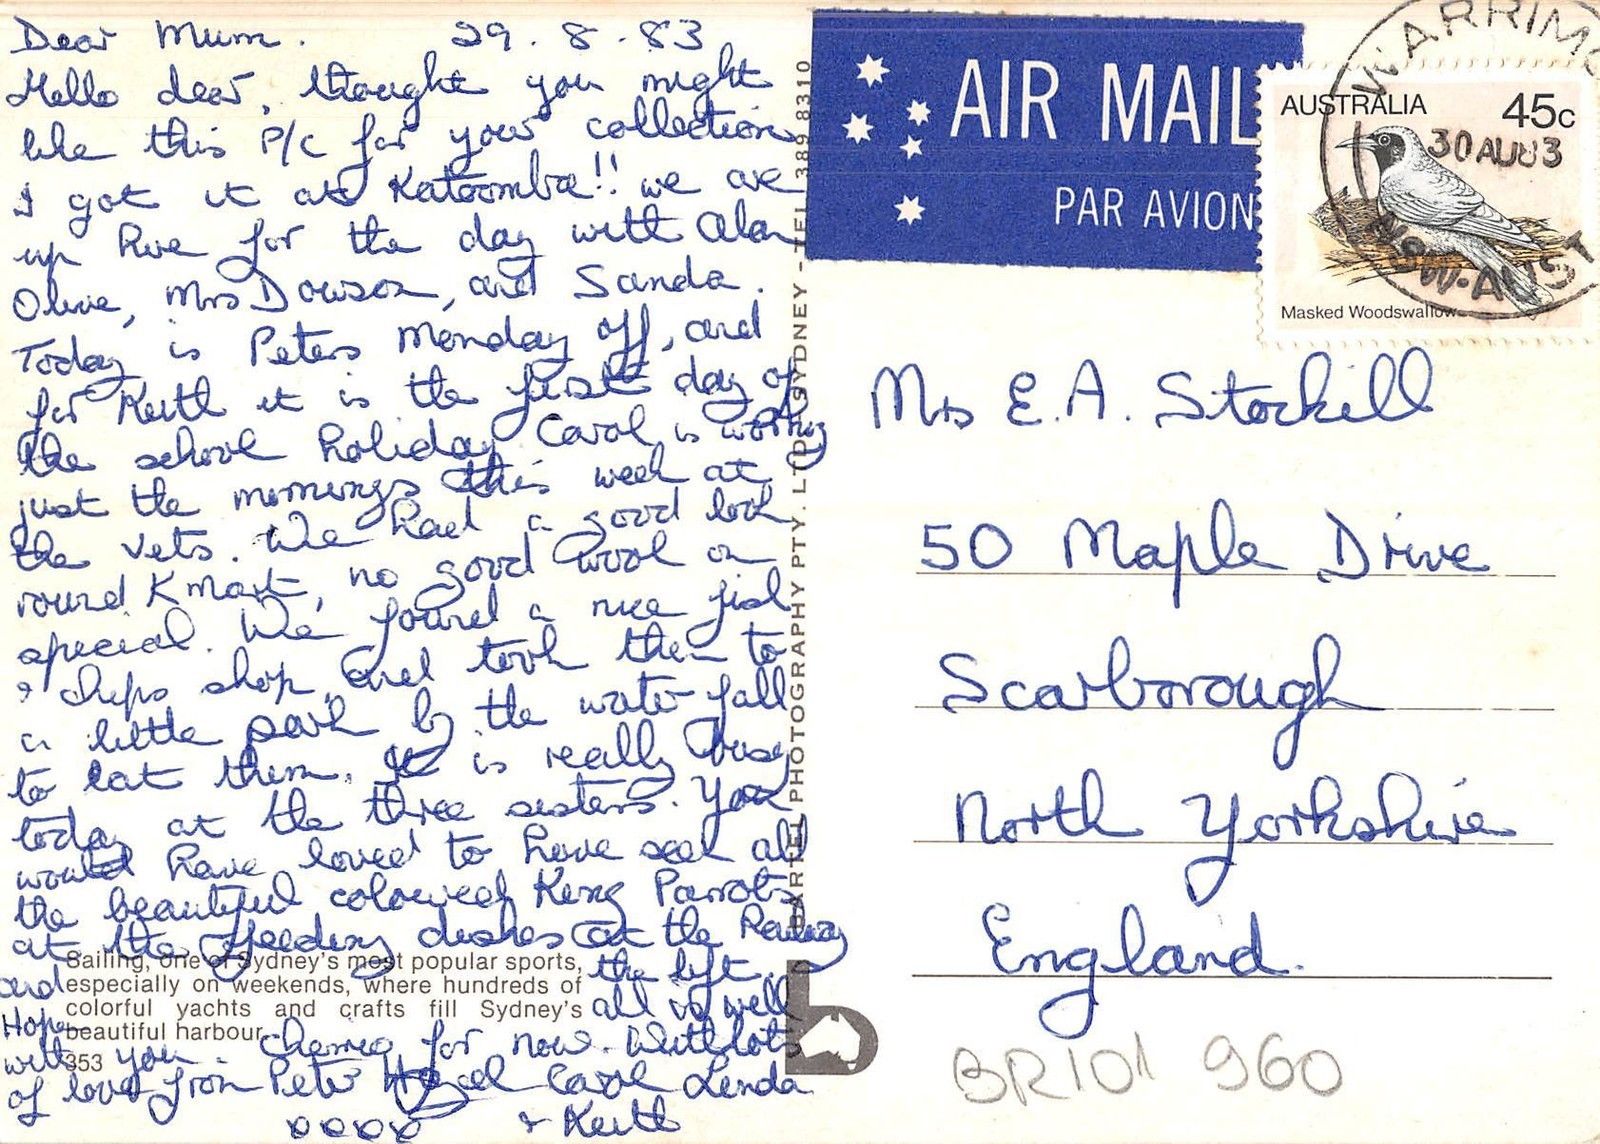 Dear Mum. 29.8.83
Hello dear, thought you might
like this P/C for your collection
I got it at Katoomba!! we are
up here for the day with Alan
Olive, Mrs Dowson, and Sanda.
Today is Peters Monday off, and
for Keith it is the first day of
the school holiday. Carol is working
just the mornings this week at
the vets. We had a good look
round K mart, no good wool on
special. We found a nice fish
& chips shop, and took them to
a little park by the water fall
to eat them. It is really busy
today at the three sisters. You
would have loved to have seen all
the beautiful coloured King Parrots
at the feeding dishes at the Railway
and the lift.
Hope all is well
with you. Cheerio for now. With lots
of love from Peter Hazel Carol Linda
oooo & Keith
Sailing, one of Sydney's most popular sports,
especially on weekends, where hundreds of
colorful yachts and crafts fill Sydney's
beautiful harbour.
353
BARTEL PHOTOGRAPHY PTY. LTD. SYDNEY - TEL. 389 8310
b
AIR MAIL
PAR AVION
AUSTRALIA 45c
Masked Woodswallow
WARRIM
30AU83
N.S.W.-AUST
Mrs E.A. Stockill
50 Maple Drive
Scarborough
North Yorkshire
England.
BR101 960